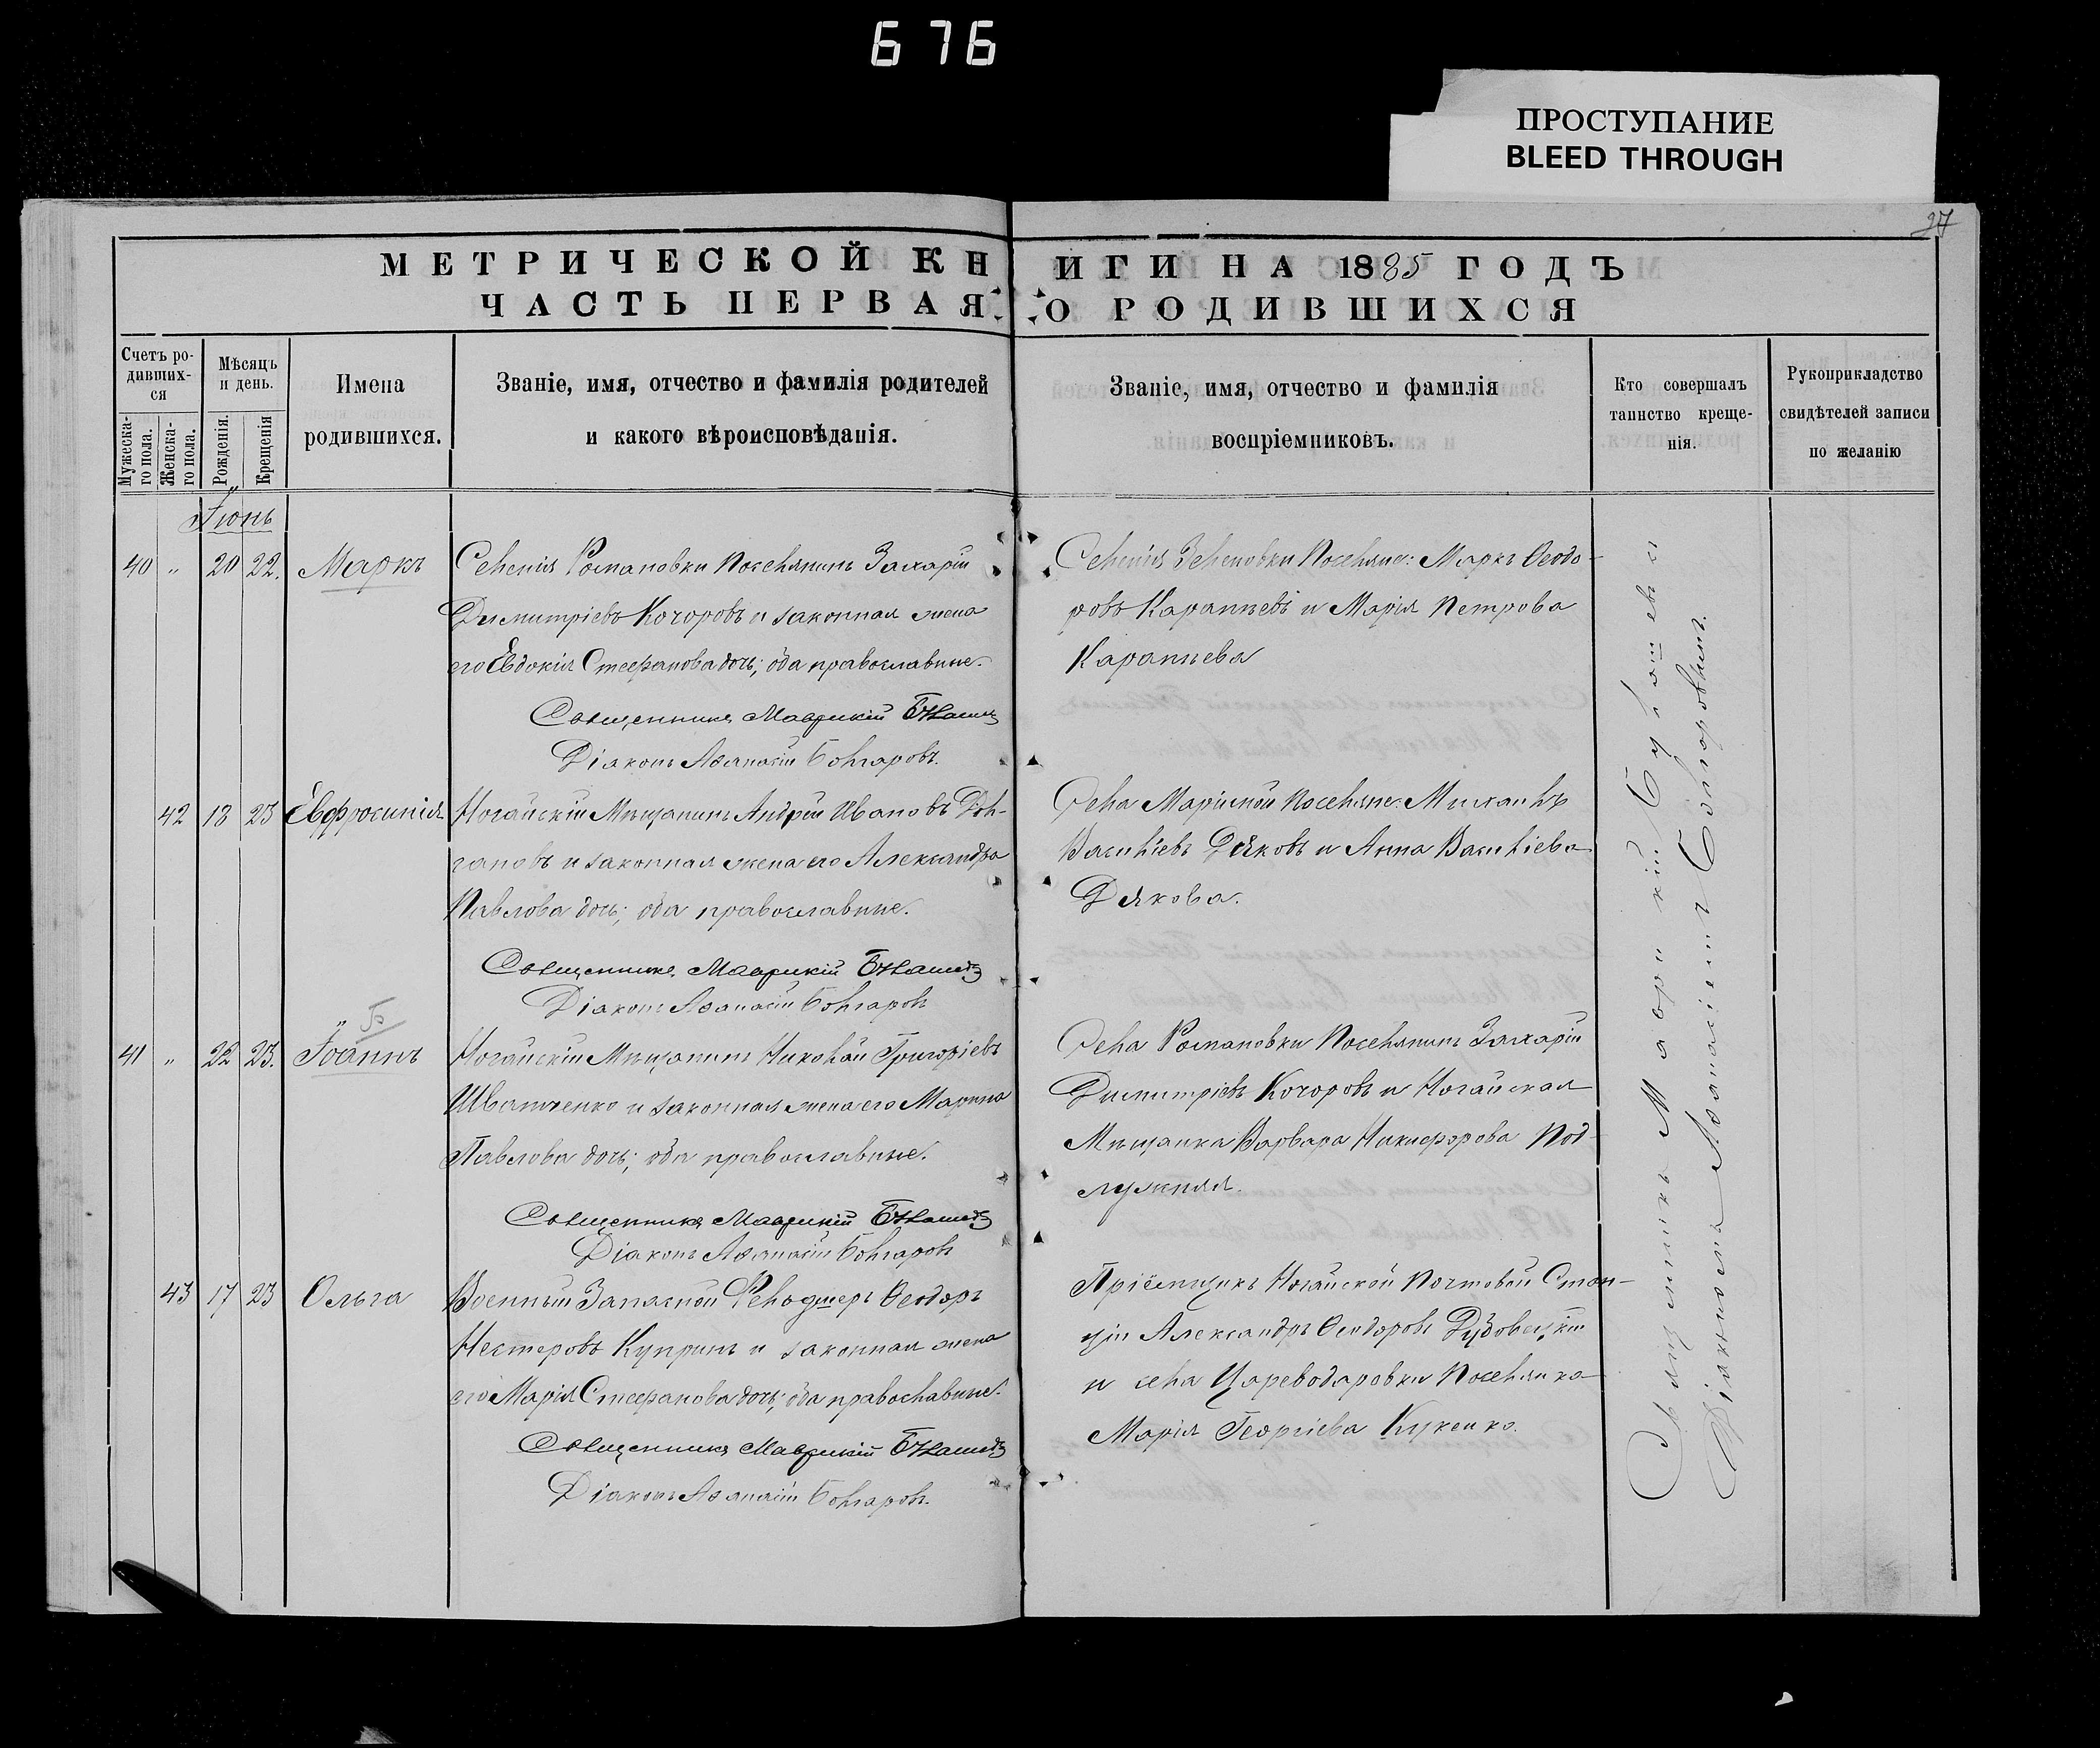 676
ПРОСТУПАНИЕ
BLEED THROUGH
27
МЕТРИЧЕСКОЙ КНИГИ НА 1885 ГОДЪ
ЧАСТЬ ПЕРВАЯ О РОДИВШИХСЯ
Счетъ ро-
дивших-
ся
Мужеска-
го пола.
Женска-
го пола.
Мѣсяцъ
и день.
Рожденія.
Крещенія
Имена
родившихся.
Званіе, имя, отчество и фамилія родителей
и какого вѣроисповѣданія.
Званіе, имя, отчество и фамилія
воспріемниковъ.
Кто совершалъ
таинство креще-
нія.
Рукоприкладство
свидѣтелей записи
по желанію
Іюнь
40 " 20 22. Маркъ
Селенія Романовки Поселянинъ Захарій
Димитріевъ Кочоровъ и законная жена
его Евдокія Стефанова дочь; оба православные.
Священникъ Маврикій
Діаконъ Аѳанасій Болгаровъ.
Селенія Зеленовки Поселяне: Маркъ Ѳеодо-
ровъ Карапневъ и Марія Петрова
Карапнева
42 18 23 Евфросинія
Ногайскій Мѣщанинъ Андрей Ивановъ Дол-
гановъ и законная жена его Александра
Павлова дочь; оба православные.
Священникъ Маврикій
Діаконъ Аѳанасій Болгаровъ
Села Маріиной Поселяне: Михаилъ
Василіевъ Дяковъ и Анна Василіева
Дякова.
41 " 22 23. Іоаннъ
Ногайскій Мѣщанинъ Николай Григоріевъ
Иватченко и законная жена его Марина
Павлова дочь; оба православные.
Священникъ Маврикій
Діаконъ Аѳанасій Болгаровъ
Села Романовки Поселянинъ Захарій
Димитріевъ Кочоровъ и Ногайская
Мѣщанка Варвара Никифорова Под-
лужная.
43 17 23 Ольга
Военный Запасной Фельдшеръ Ѳеодоръ
Нестеровъ Купринъ и законная жена
его Марія Стефанова дочь; оба православные.
Священникъ Маврикій
Діаконъ Аѳанасій Болгаровъ.
Пріемщикъ Ногайской Почтовой Стан-
ціи Александръ Ѳеодоровъ Дудовецкій
и села Цареводаровки Поселянка
Марія Георгіева Кукенко.
Священникъ Маврикій
Діакономъ Аѳанасіемъ Болгаровымъ.